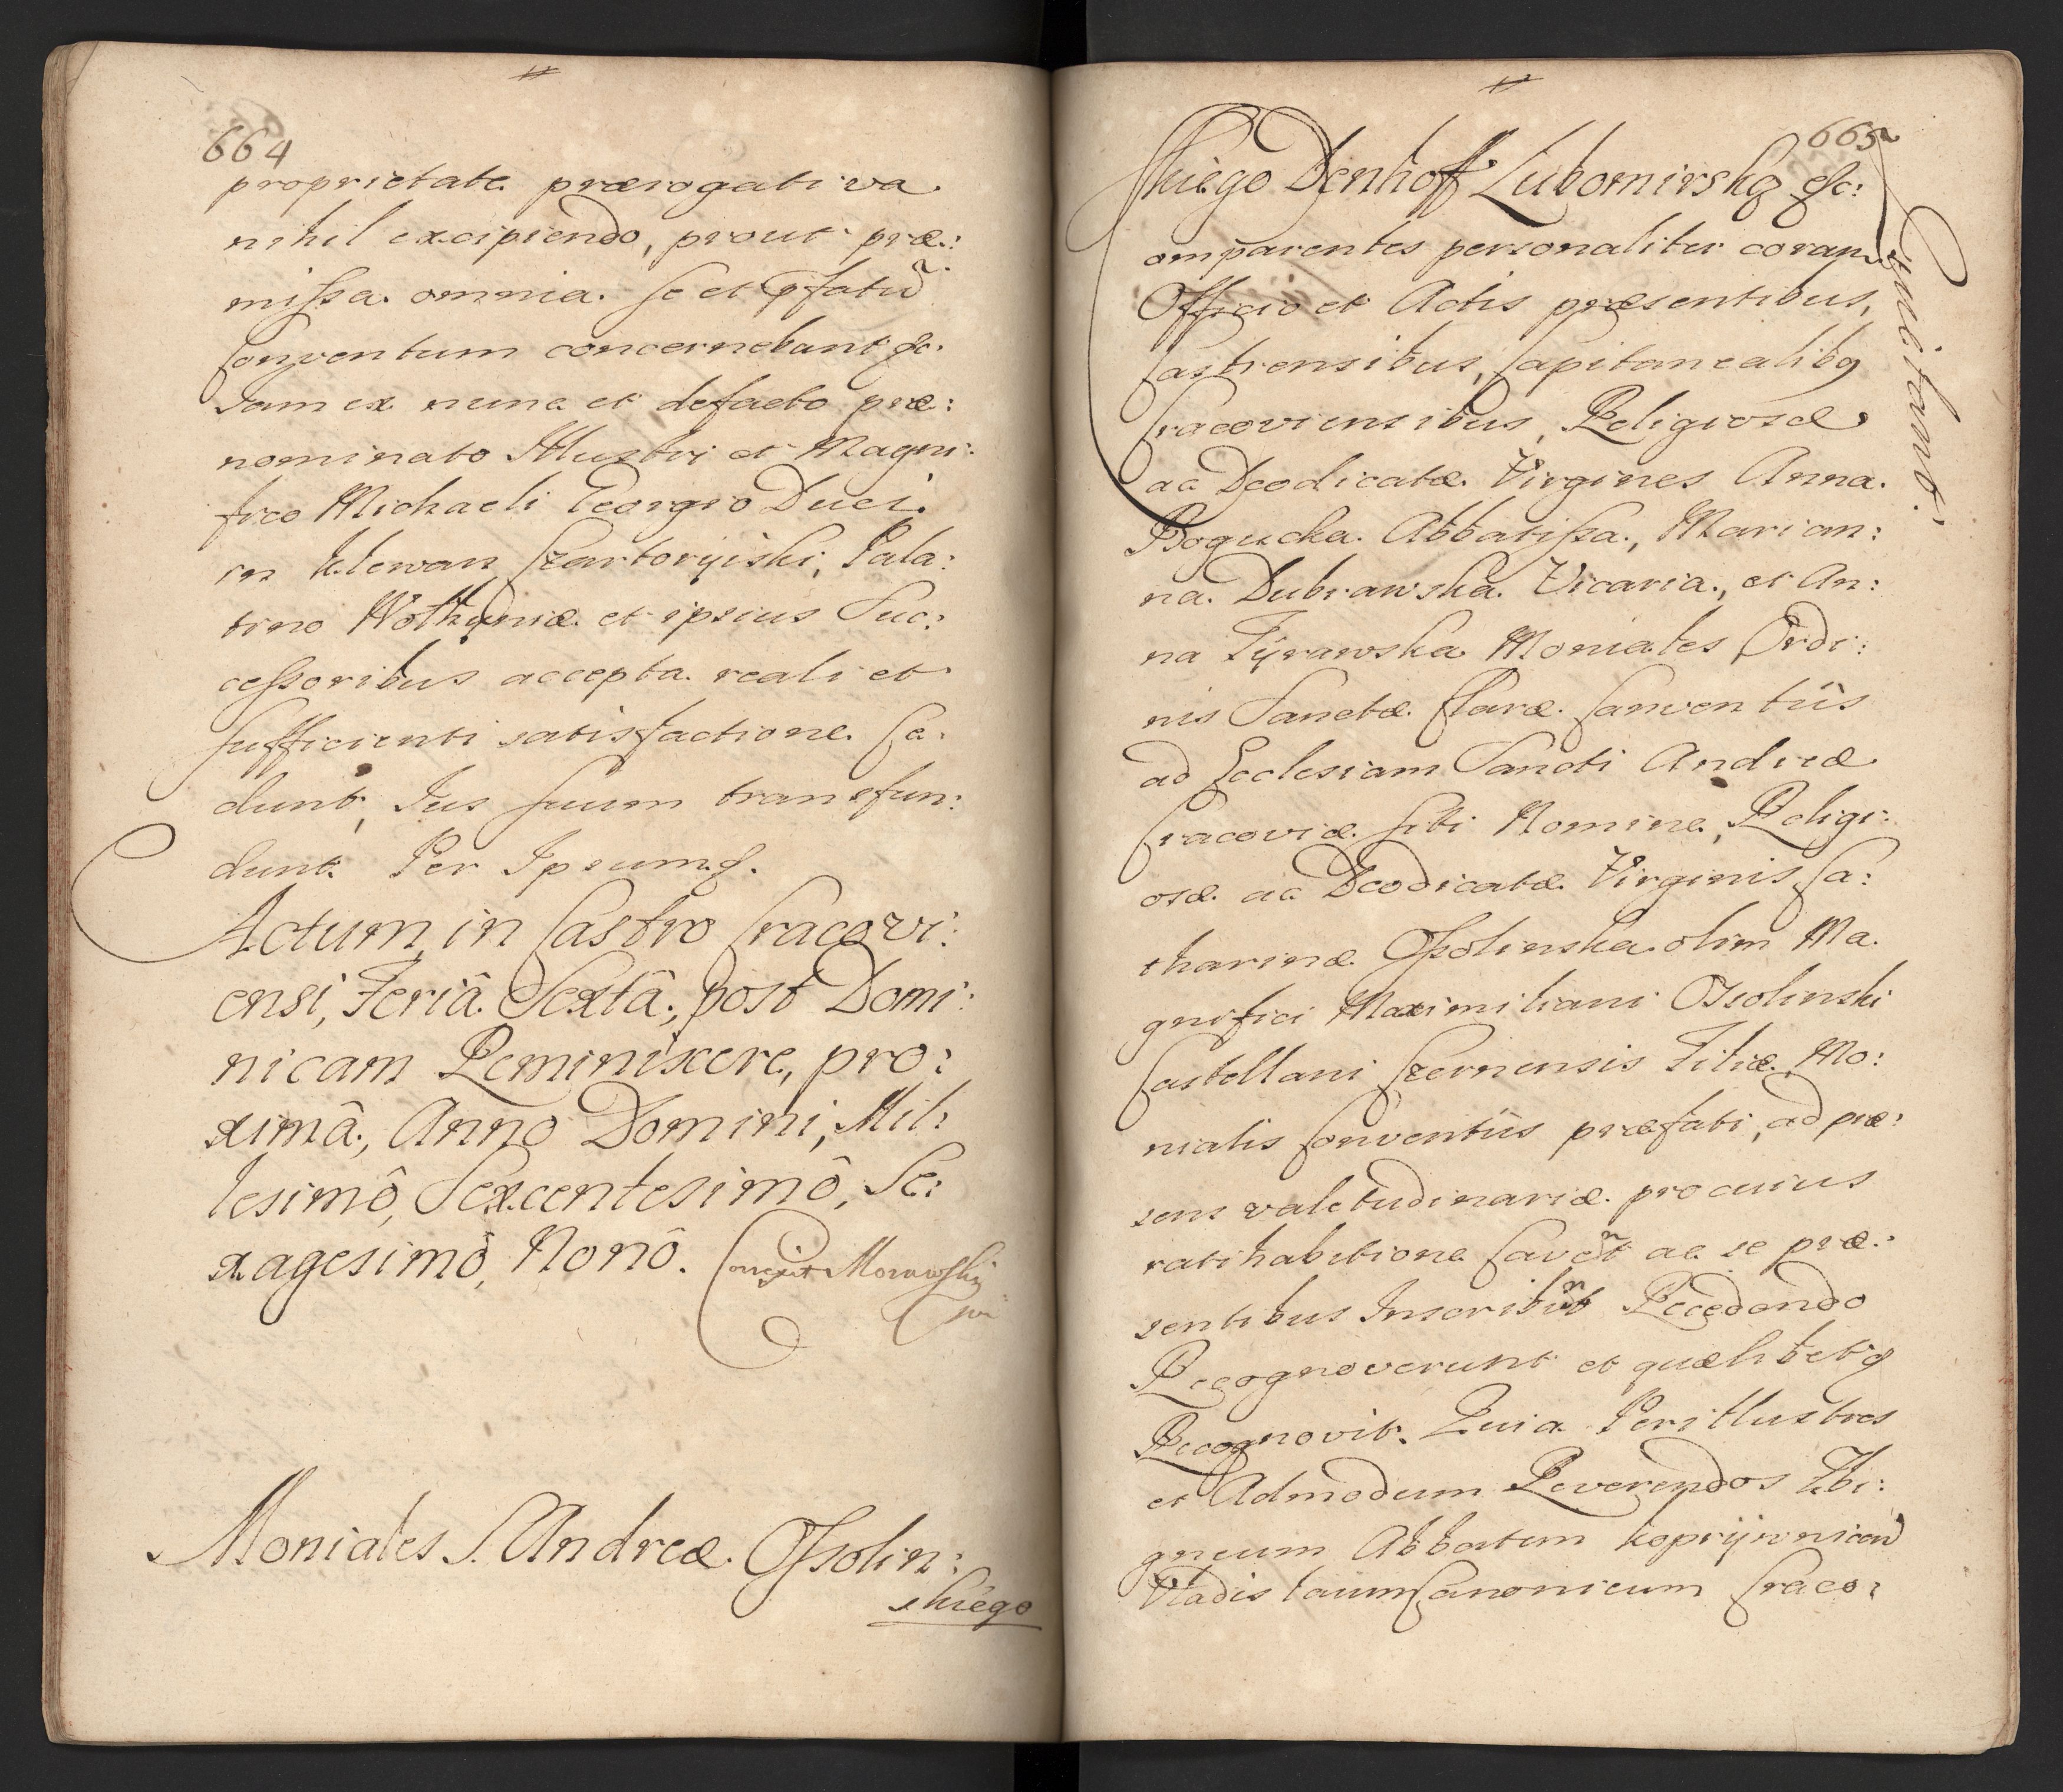 664
proprietate prærogativa
nihil excipiendo, prout præ:
missa omnia se et pfatu
Conventum concernebant &c.
Jam ex nunc et defacto præ:
nominato Illustri et Magni:
fico Michaeli Georgio Duci
in Klewan Czartoryiski, Pala:
tino Wolhyniæ et ipsius Suc:
cessoribus accepta reali et
sufficienti satisfactione Ce:
dunt, Jus suum transfun:
dunt. Per Ipsum &.
Actum in Castro Cracovi:
ensi, Feriâ Sextâ, post Domi:
nicam Reminiscere, pro:
ximâ, Anno Domini, Mil:
lesimô, Sexcentesimô, Se:
xagesimô, Nonô. Correxit Morawski
Moniales S. Andreæ Ossolin:
skiego
665
skiego Denhoff Lubomirską &c:
Quietant.
Comparentes personaliter coram
Officio et Actis præsentibus,
Castrensibus, Capitanealibq
Cracoviensibus, Religiosæ
ac Deodicatæ Virgines Anna
Bogucka Abbatissa, Marian:
na Dubrawska Vicaria, et An:
na Tyrawska Moniales Ordi:
nis Sanctæ Claræ Conventus
ad Ecclesiam Sancti Andreæ
Cracoviæ siti Nomine, Religi:
osæ ac Deodicatæ Virginis Ca:
tharinæ Ossolinska olim Ma:
gnifici Maximiliani Ossolinski
Castellani Czernensis Filiæ, Mo:
nialis Conventus præfati, ad præ:
sens valetudinariæ pro cuius
ratihabitione Cavent ac se præ:
sentibus Inscribunt Recedendo
Recognoverunt et quælibet q
Recognovit. Quia Perillustres
et Admodum Reverendos Zbi:
gneum Abbatem Koprzywnicen
Vladislaum Canonicum Craco: